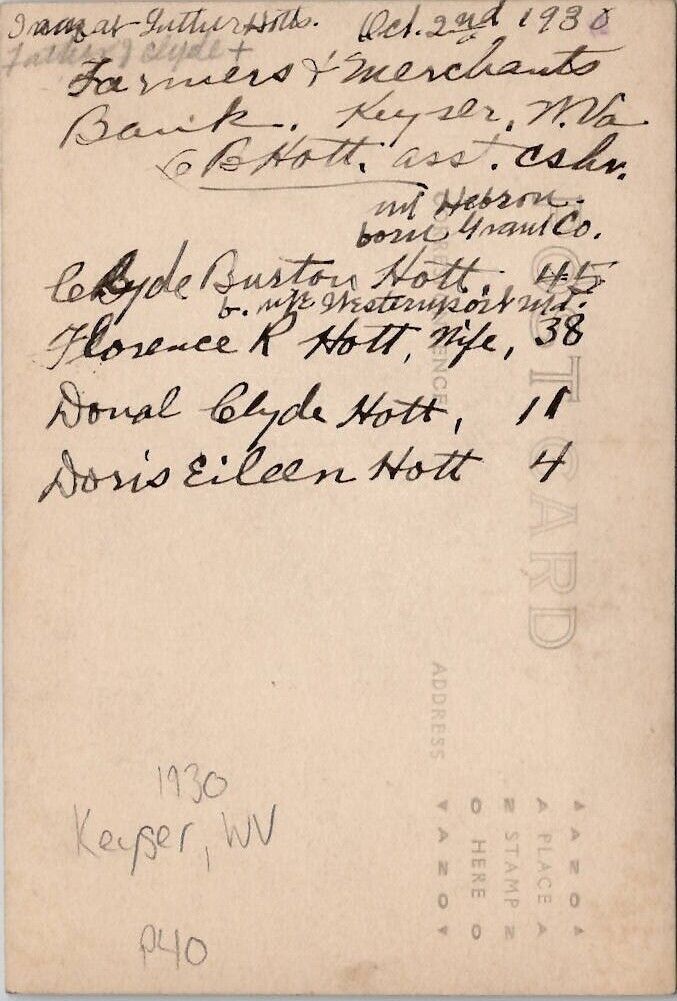 at Luther Hotts. Oct. 2nd 1930
Father of Clyde +
Farmers & Merchants
Bank. Keyser, W. Va
C B Hott. asst. cshr.
mt Hebron.
born Grant Co.
Clyde Burton Hott. 45
b. Westernport Md.
Florence R Hott, Wife, 38
Donal Clyde Hott, 11
Doris Eileen Hott 4
POST CARD
CORRESPONDENCE
ADDRESS
AZO
PLACE
STAMP
HERE
AZO
1930
Keyser, WV
P40